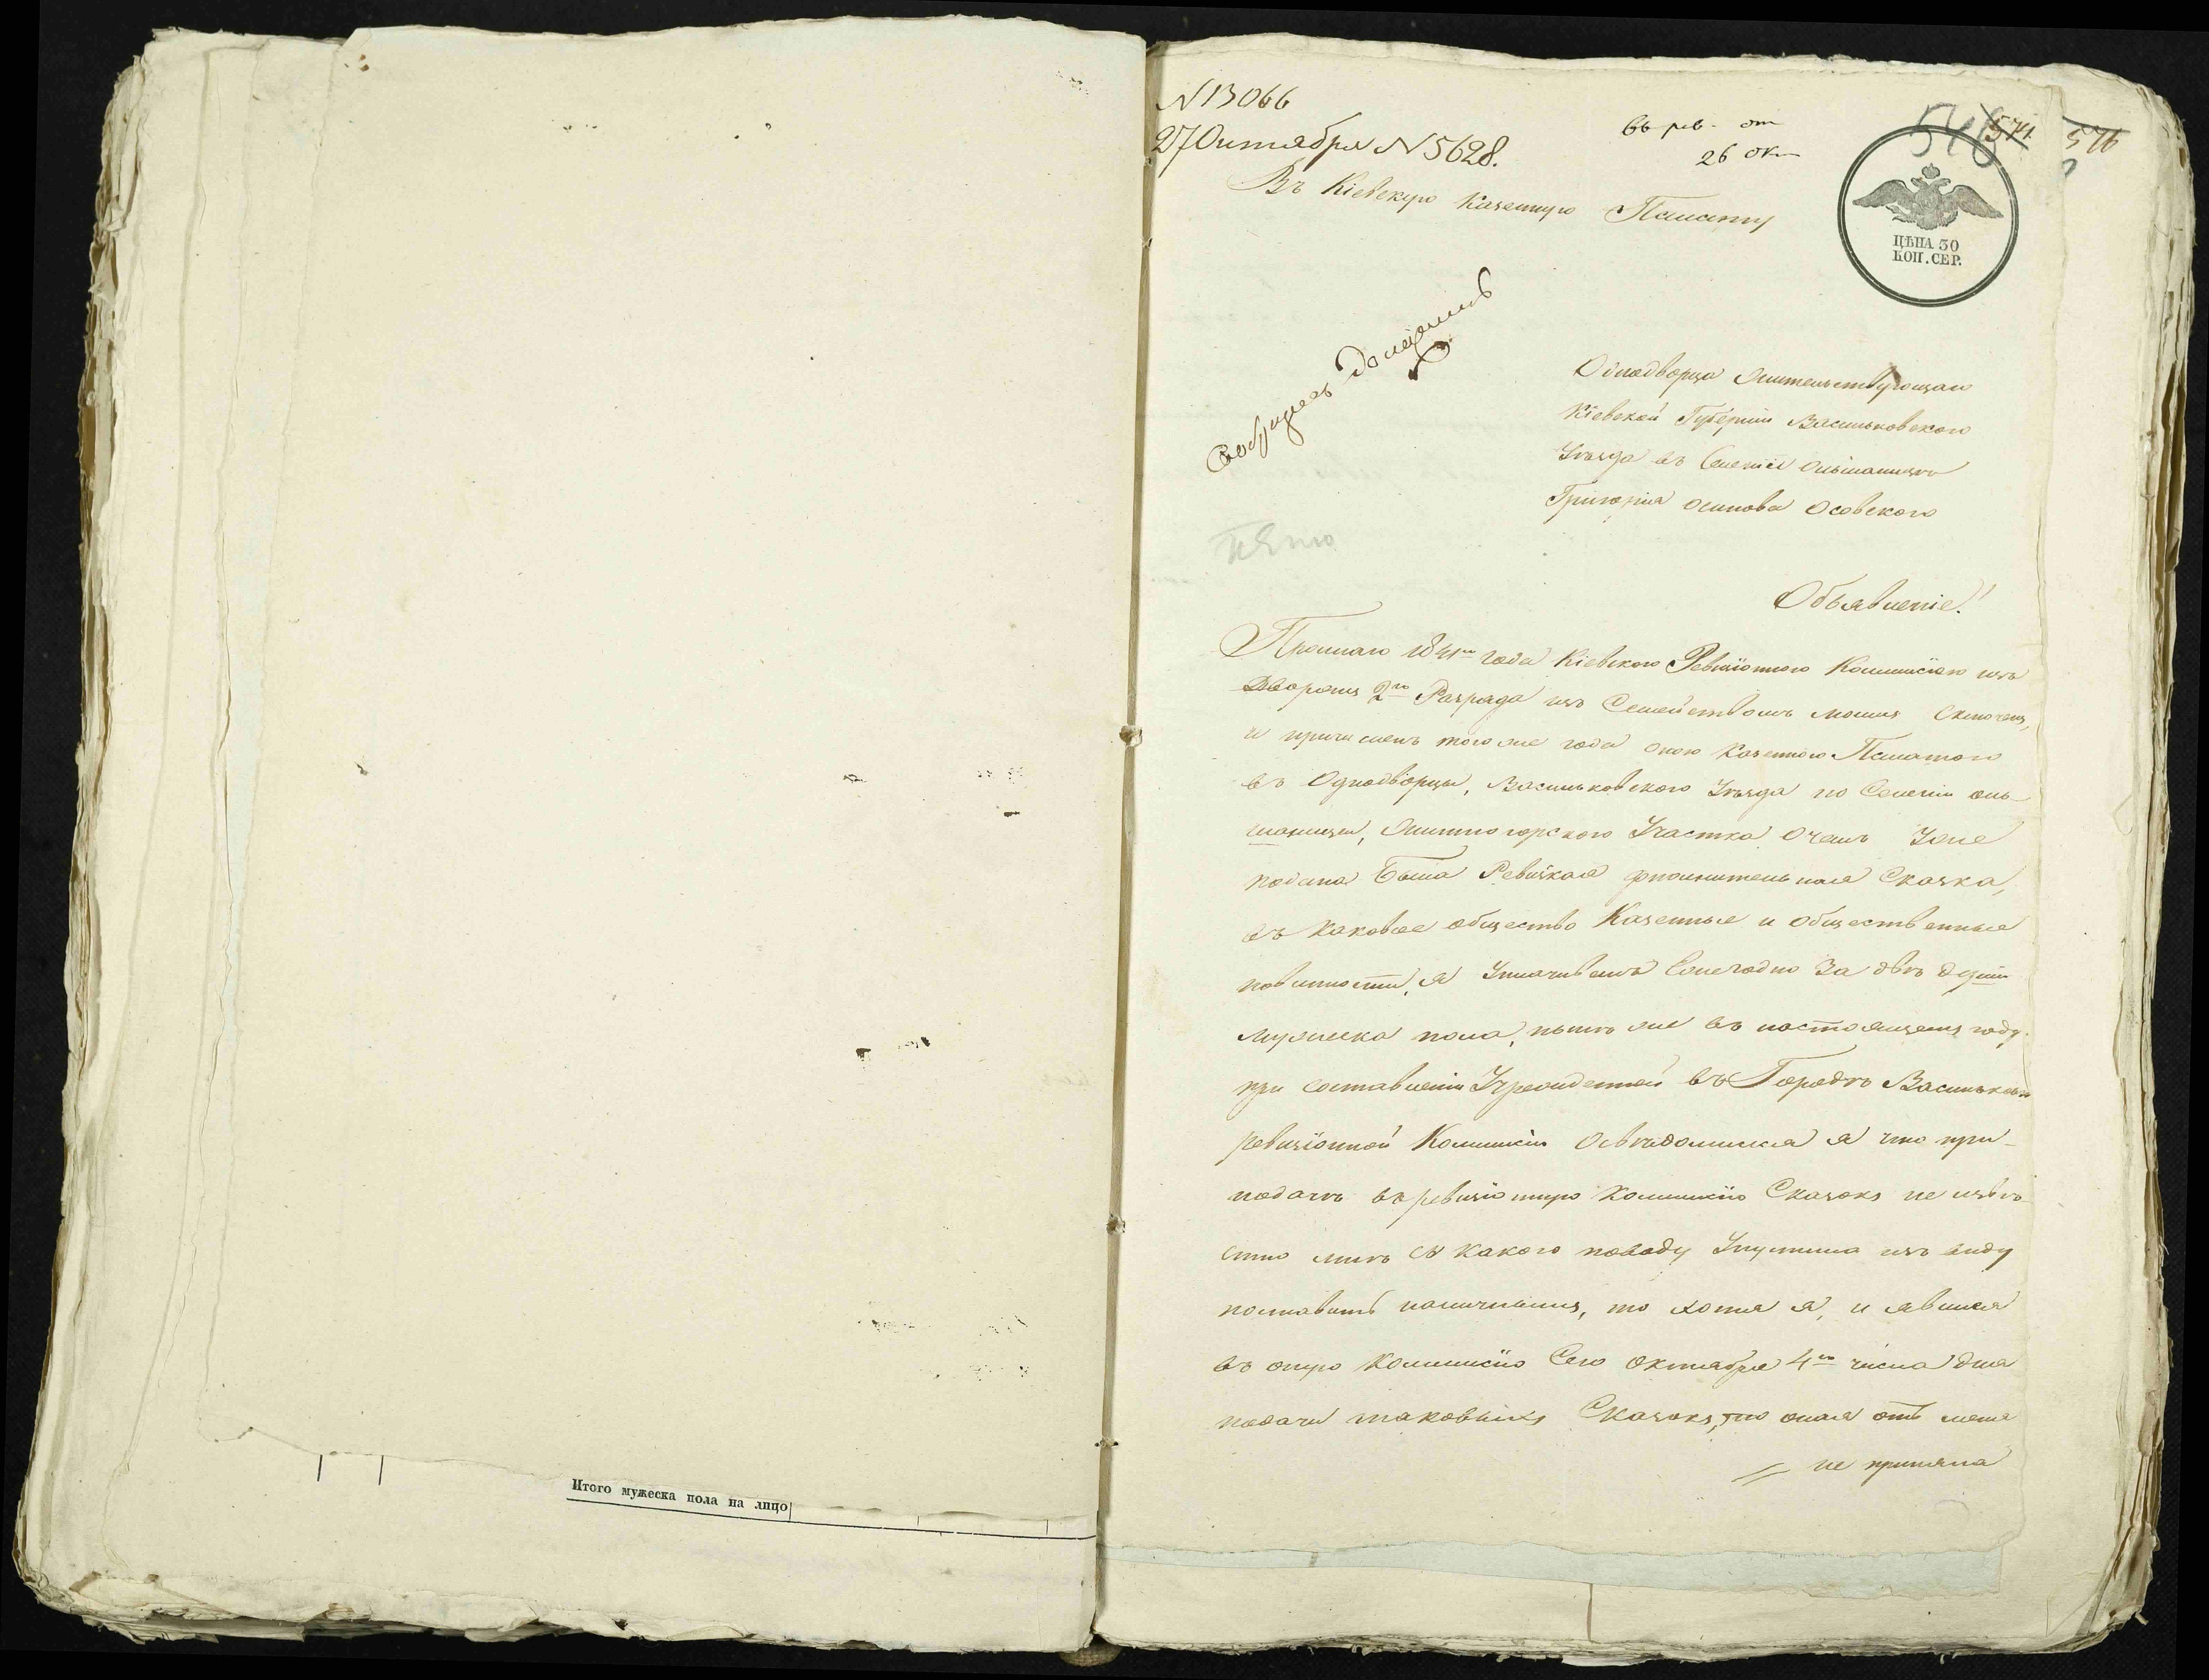 Итого мужеска пола на лицо
N 13066
27 Октября N 5628.
въ рев. от
26 Ок
546
571
576
Въ Кіевскую Казенную Палату
ЦѢНА 30
КОП. СЕР.
Однодворца жительствующаго
Кіевской Губерніи Васильковского
Уѣзда въ Селеніи Ольшаницѣ
Григорія Осипова Осовского
Объявленіе!
Прошлаго 1841го года Кіевскою Ревизіонною Коммисіею изъ
Дворянъ 2го Разряда изъ Семействомъ моимъ
и причисленъ того же года оною Казенною Палатою
въ Однодворцы, Васильковского Уѣзда по Селенію Оль-
шаницы, Житногорского Участка О чемъ Уже
подана Была Ревизкая Сказка,
въ каковое общество Казенные и общественные
повинности, я Уплачивалъ Ежегодно За двѣ души
мужеска пола, нынѣ же въ настоящемъ году
при составленіи Учрежденной въ Городѣ Васильковѣ
ревизіонной Коммисіи Освѣдомился я что при-
подачѣ въ ревизіонную Коммисію Сказокъ не извѣ-
стно мнѣ съ какого поводу Упустила изъ виду
поставить наличнымъ, то хотя я, и явился
въ оную Коммисію Сего Октября 4го числа для
подачи таковыхъ Сказокъ, но оная отъ меня
не приняла